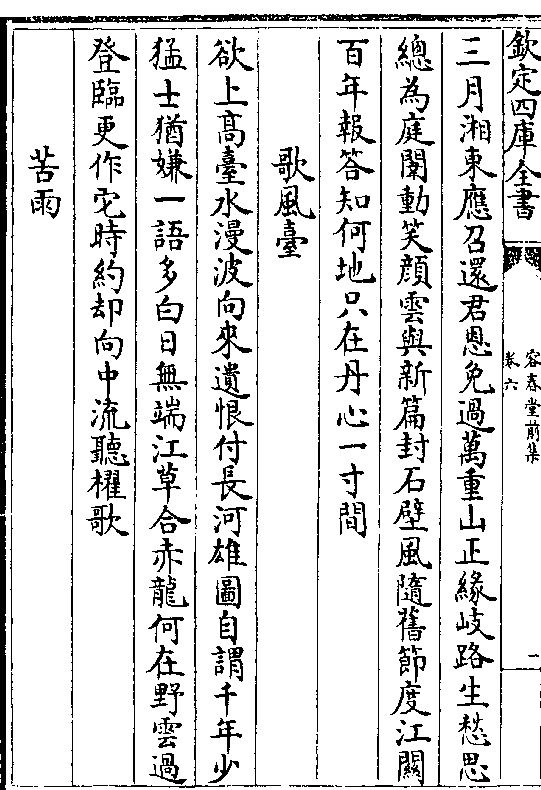 欽定四庫全書
容春堂前集
卷六
一
三月湘東應召還君恩免過萬重山正緣岐路生愁思
總為庭闈動笑顔雲與新篇封石壁風隨舊節度江關
百年報答知何地只在丹心一寸間
歌風臺
欲上髙臺水漫波向來遺恨付長河雄圖自謂千年少
猛士猶嫌一語多白日無端江草合赤龍何在野雲過
登臨更作它時約却向中流聽櫂歌
苦雨